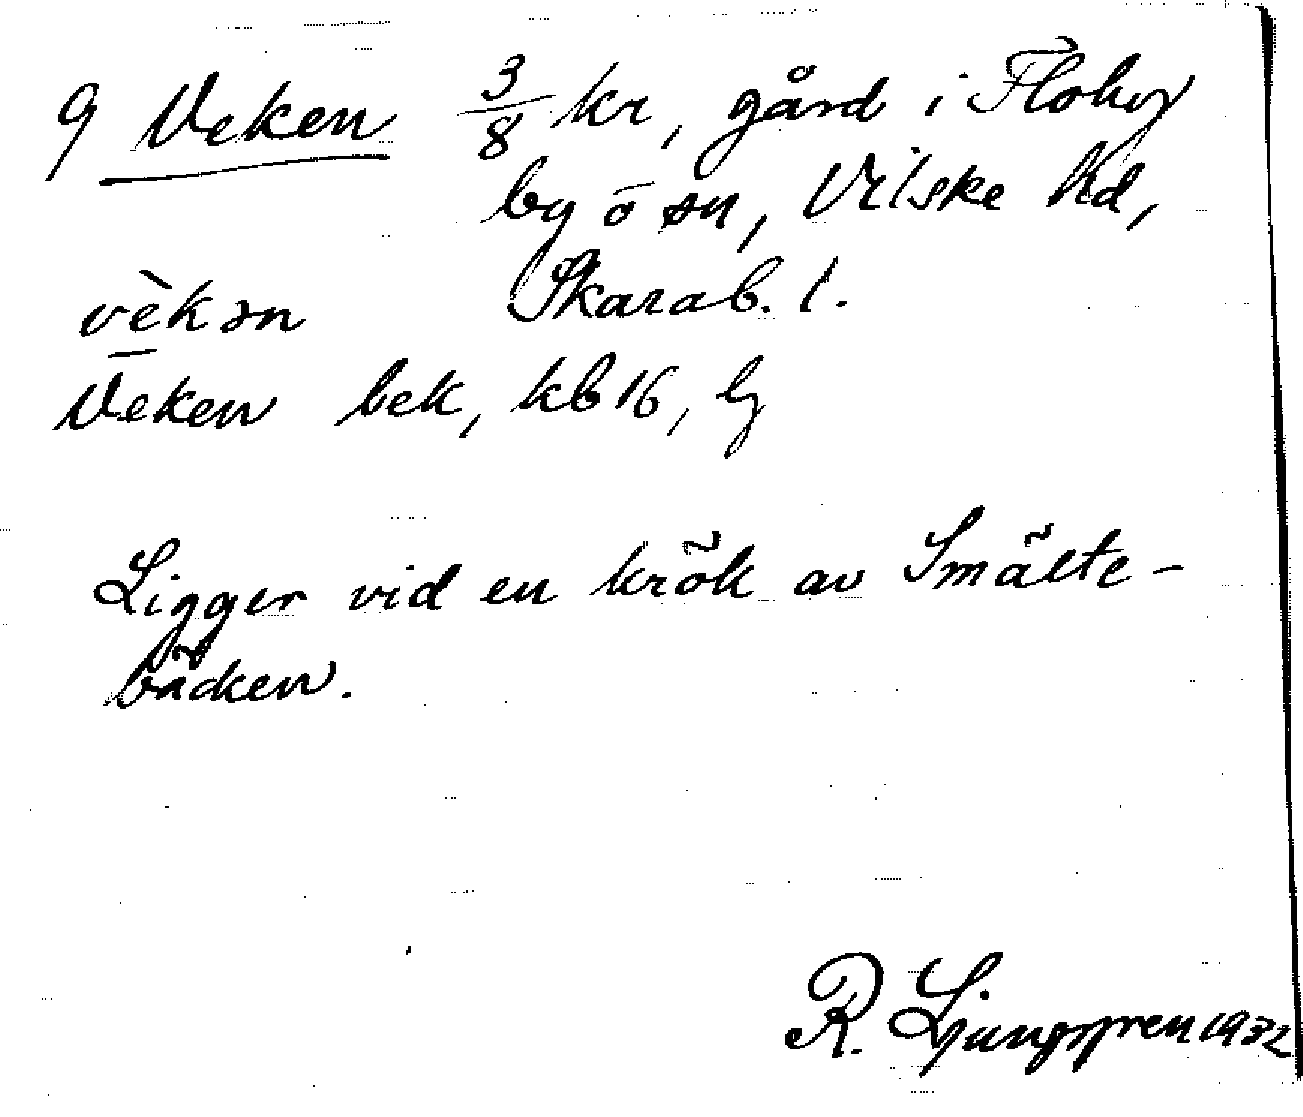 9 Veken 3/8 kr, gård i Floby
by o sn, Vilske hd,
vèkən Skarab. l.
Veken bek, kb 16, lj
Ligger vid en krök av Smälte-
bäcken.
R. Ljunggren 1932